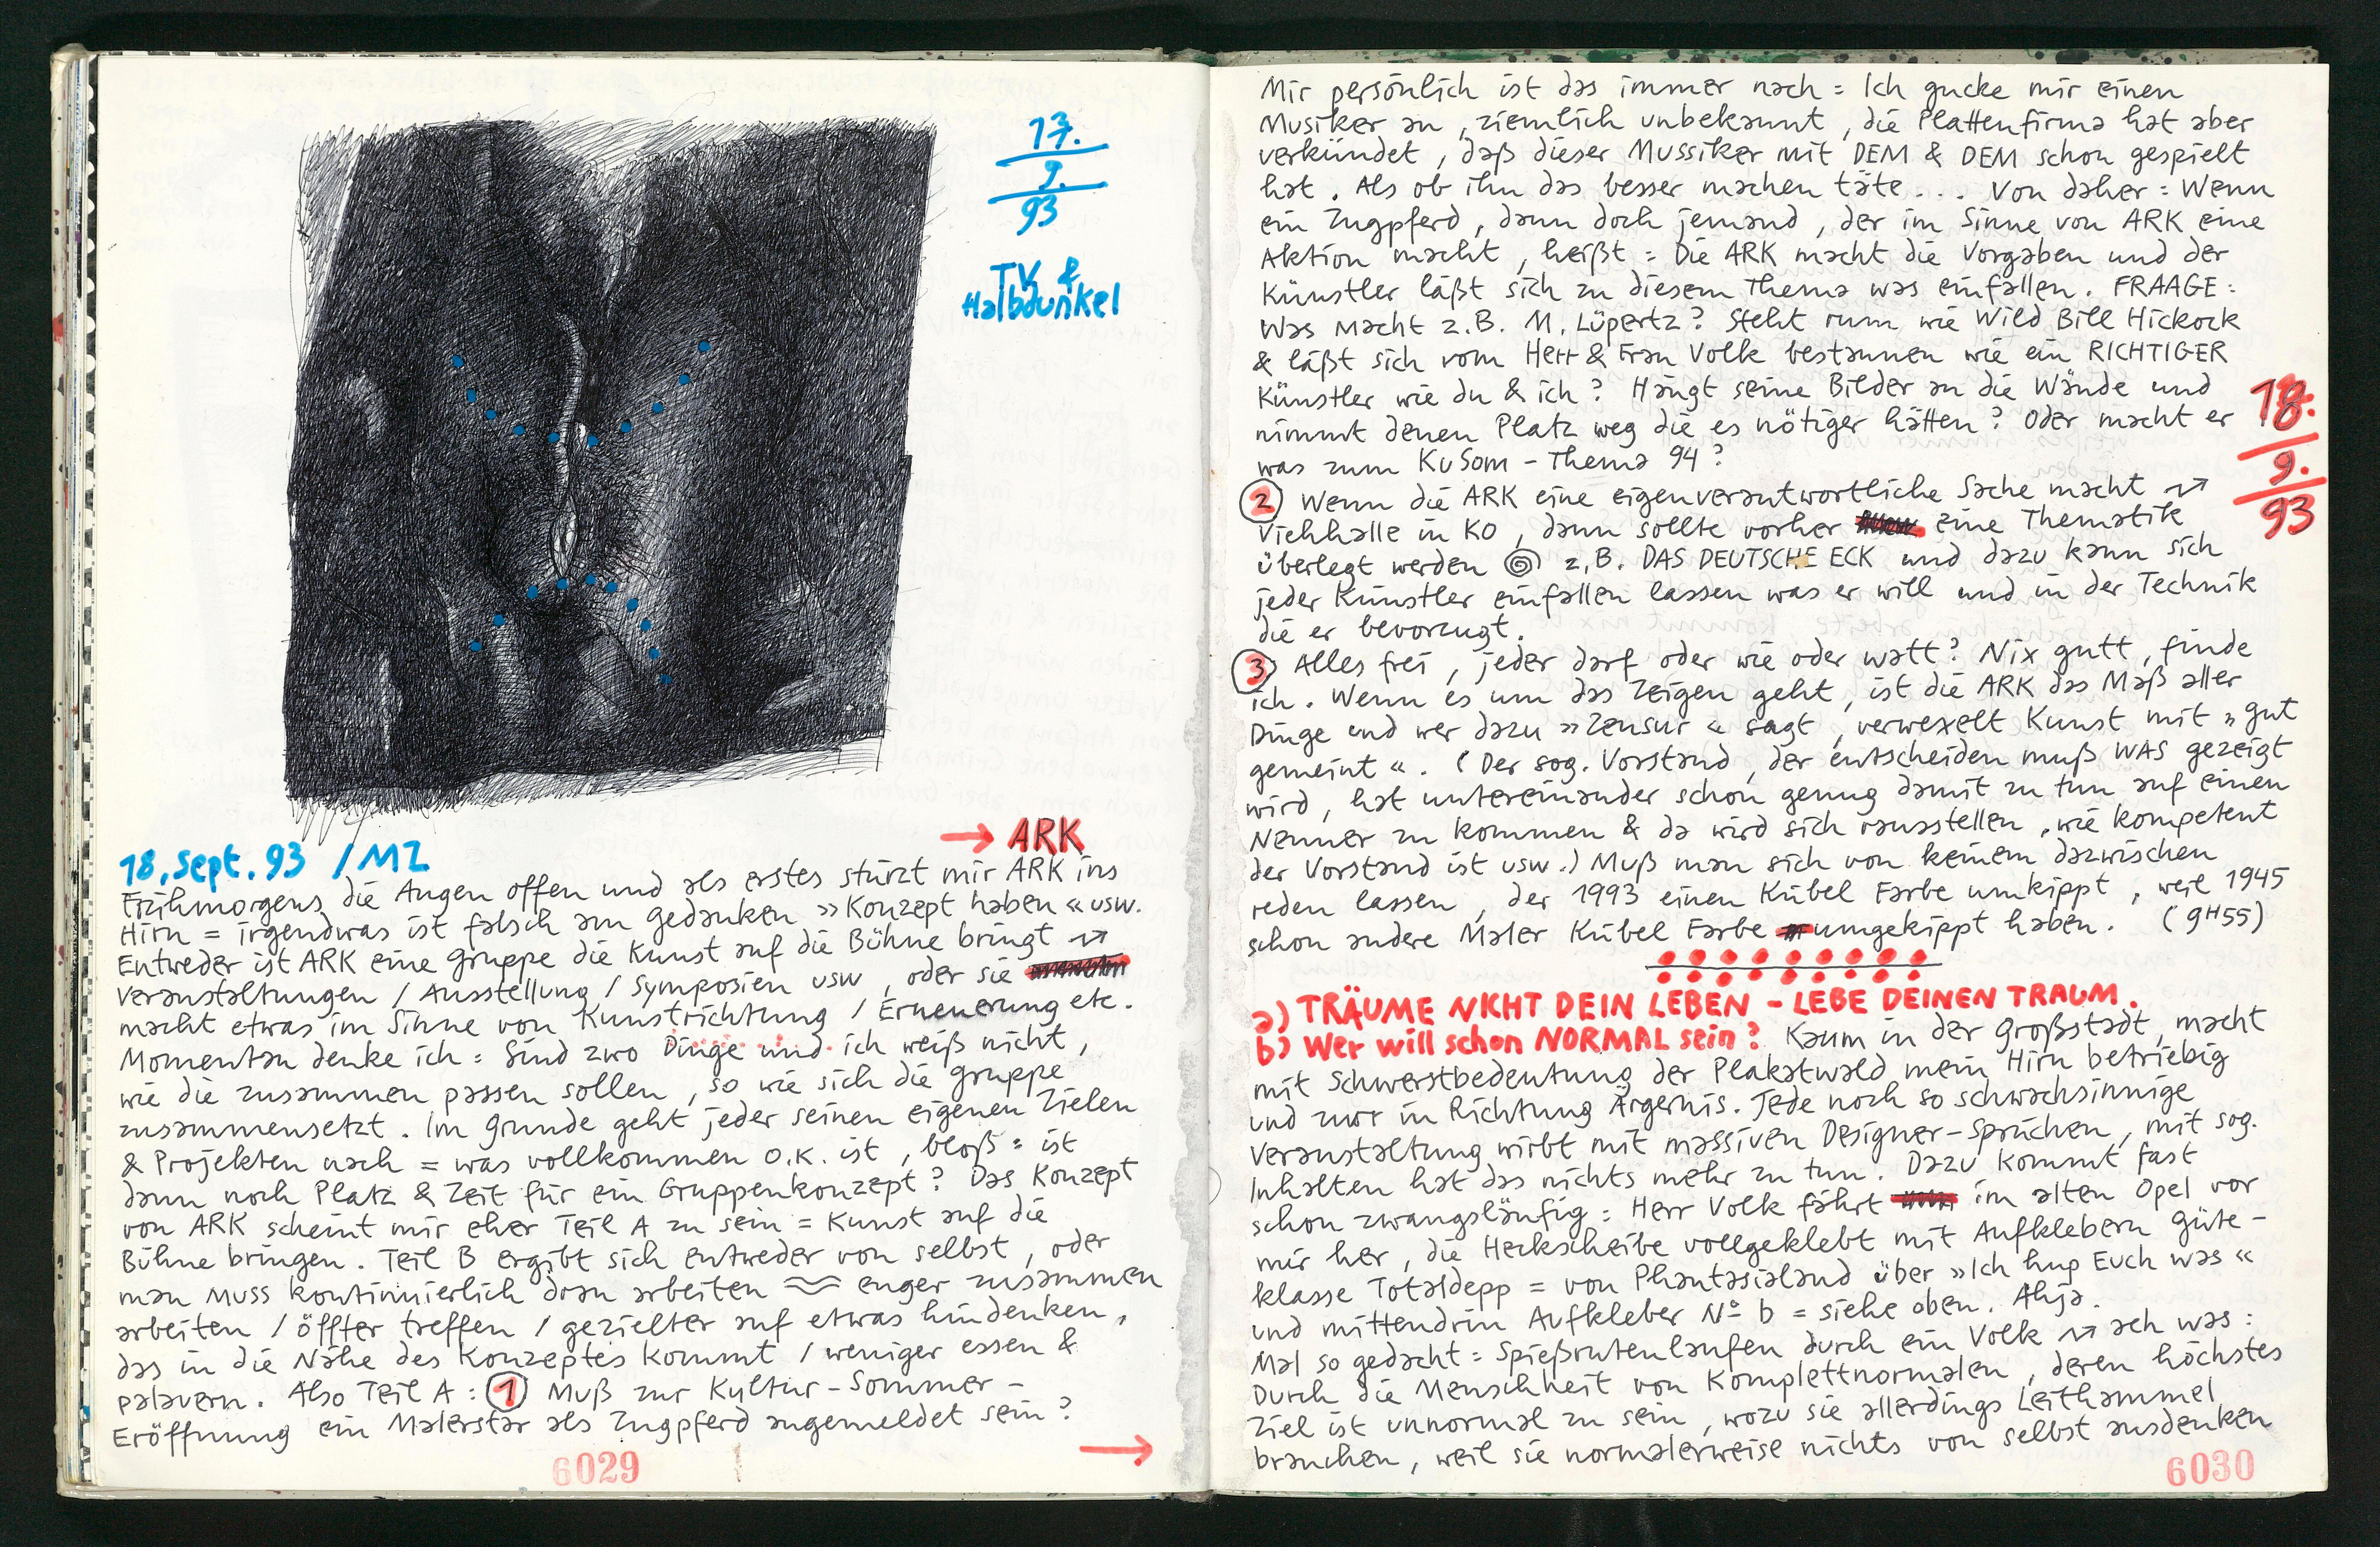 17.
9.
93
TV &
Halbdunkel
→ ARK
18. Sept. 93 / MZ
Frühmorgens die Augen offen und als erstes stürzt mir ARK ins
Hirn = irgendwas ist falsch am Gedanken »Konzept haben« usw.
Entweder ist ARK eine Gruppe die Kunst auf die Bühne bringt
Veranstaltungen / Ausstellung / Symposien usw, oder sie
macht etwas im Sinne von Kunstrichtung / Erneuerung etc.
Momentan denke ich = Sind zwo Dinge und ich weiß nicht,
wie die zusammen passen sollen, so wie sich die Gruppe
zusammensetzt. Im Grunde geht jeder seinen eigenen Zielen
& Projekten nach = was vollkommen O.K. ist, bloß = ist
dann noch Platz & Zeit für ein Gruppenkonzept? Das Konzept
von ARK scheint mir eher Teil A zu sein = Kunst auf die
Bühne bringen. Teil B ergibt sich entweder von selbst, oder
man muss kontinuierlich dran arbeiten ≈ enger zusammen
arbeiten / öffter treffen / gezielter auf etwas hindenken,
das in die Nähe des Konzeptes kommt / weniger essen &
palavern. Also Teil A: 1 Muß zur Kultur-Sommer-
Eröffnung ein Malerstar als Zugpferd angemeldet sein?
→
6029
Mir persönlich ist das immer nach = Ich gucke mir einen
Musiker an, ziemlich unbekannt, die Plattenfirma hat aber
verkündet, daß dieser Mussiker mit DEM & DEM schon gespielt
hat. Als ob ihn das besser machen täte... Von daher = Wenn
ein Zugpferd, dann doch jemand, der im Sinne von ARK eine
Aktion macht, heißt = Die ARK macht die Vorgaben und der
Künstler läßt sich zu diesem Thema was einfallen. FRAAGE:
Was macht z.B. M. Lüpertz? Steht rum wie Wild Bill Hickock
& läßt sich vom Herr & Frau Volk bestaunen wie ein RICHTIGER
Künstler wie du & ich? Hängt seine Bilder an die Wände und
nimmt denen Platz weg die es nötiger hätten? Oder macht er
was zum KuSom-Thema 94?
18.
9.
93
2 Wenn die ARK eine eigenverantwortliche Sache macht
Viehhalle in KO, dann sollte vorher eine Thematik
überlegt werden z.B. DAS DEUTSCHE ECK und dazu kann sich
jeder Künstler einfallen lassen was er will und in der Technik
die er bevorzugt.
3 Alles frei, jeder darf oder wie oder watt? Nix gutt, finde
ich. Wenn es um das Zeigen geht, ist die ARK das Maß aller
Dinge und wer dazu »Zensur« sagt, verwexelt Kunst mit »gut
gemeint«. (Der sog. Vorstand, der entscheiden muß WAS gezeigt
wird, hat untereinander schon genug damit zu tun auf einen
Nenner zu kommen & da wird sich rausstellen, wie kompetent
der Vorstand ist usw.) Muß man sich von keinem dazwischen
reden lassen, der 1993 einen Kübel Farbe umkippt, weil 1945
schon andere Maler Kübel Farbe umgekippt haben. (9H55)
a) TRÄUME NICHT DEIN LEBEN - LEBE DEINEN TRAUM.
b) Wer will schon NORMAL sein? Kaum in der Großstadt, macht
mit Schwerstbedeutung der Plakatwald mein Hirn betriebig
und zwar in Richtung Ärgernis. Jede noch so schwachsinnige
Veranstaltung wirbt mit massiven Designer-Sprüchen, mit sog.
Inhalten hat das nichts mehr zu tun. Dazu kommt fast
schon zwangsläufig = Herr Volk fährt im alten Opel vor
mir her, die Heckscheibe vollgeklebt mit Aufklebern Güte-
klasse Totaldepp = von Phantasialand über »Ich hup Euch was«
und mittendrin Aufkleber No b = siehe oben. Ahja.
Mal so gedacht = Spießrutenlaufen durch ein Volk ach was:
Durch die Menschheit von Komplettnormalen, deren höchstes
Ziel ist unnormal zu sein, wozu sie allerdings Leithammel
brauchen, weil sie normalerweise nichts von selbst ausdenken
6030